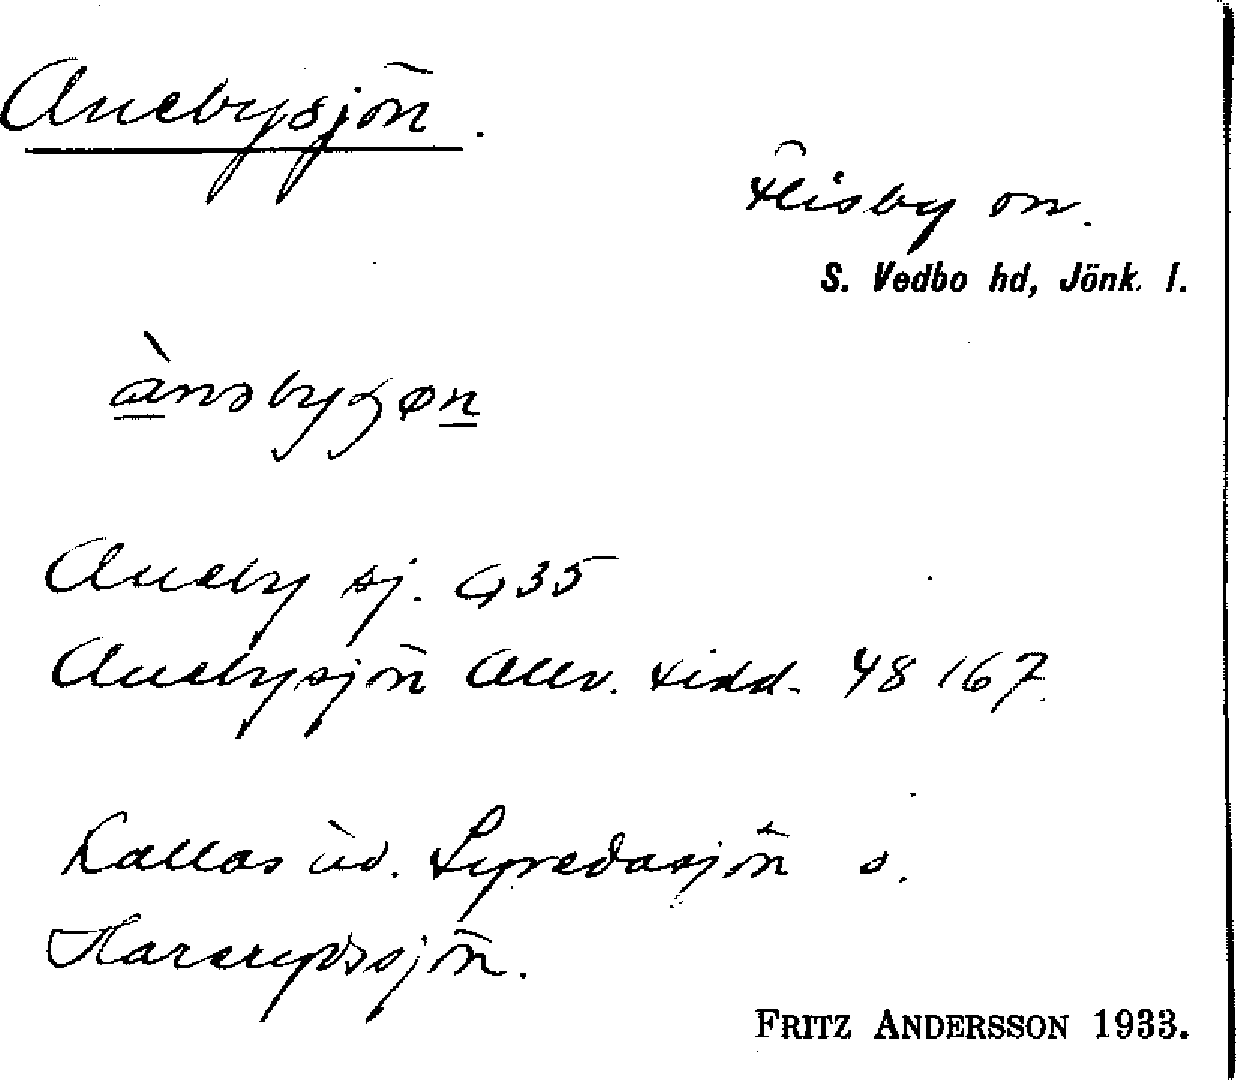 Anebysjön.
Flisby sn.
S. Vedbo hd, Jönk. l.
Aneby sj. G 35
Anebysjön Allm. tidd. 48 167
Kallas äv. Syredasjön o.
Hararydssjön.
FRITZ ANDERSSON 1933.